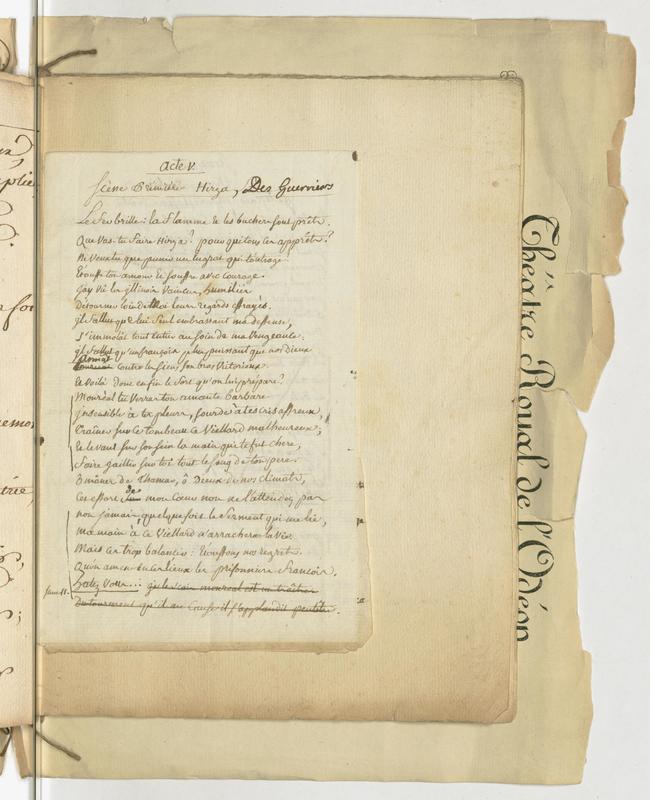 Acte V.
Scène Première Hirza, Des Guerriers
Le feu brille: la flamme et les buchers sont prêts.
Que vas-tu faire Hirza? pour qui tous ces apprêts?
Ne veux tu que punir un ingrat qui t'outrage?
Etouffe ton amour et souffre avec courage.
J'ay vû les illinois vaincus, humiliés
Détourner loin de moi leurs regards effrayés.
il falloit que lui seul embrassant ma deffense,
S'immolât tout entier au soin de ma vengeance.
il falloit qu'un françois plus puissant que nos dieux
armât contre les siens son bras victorieux.
Et voilà donc enfin le sort qu'on lui prépare?
Monréal tu verras ton amante barbare
insensible à tes pleurs, sourde à tes cris affreux,
Traîner sur ce tombeau ce Viellard malheureux,
Et levant sur son sein la main qui te fut chere,
Faire jaillir sur toi tout le sang de ton pere.
ô mânes de Thamar, ô Dieux de nos climats,
Cet effort de mon Cœur non ne l'attendez pas
non jamais, quelque soit le serment qui me lie,
ma main à ce Viellard n'arrachera la Vie.
Mais c'est trop balancer: étouffons nos regrets.
Qu'on amene en ces lieux les prisonniers francois,
hatez vous... je le sais monreal est un traître
qu'il me cause il s'applaudit peutêtre.
Théâtre Royal de l'Odéon